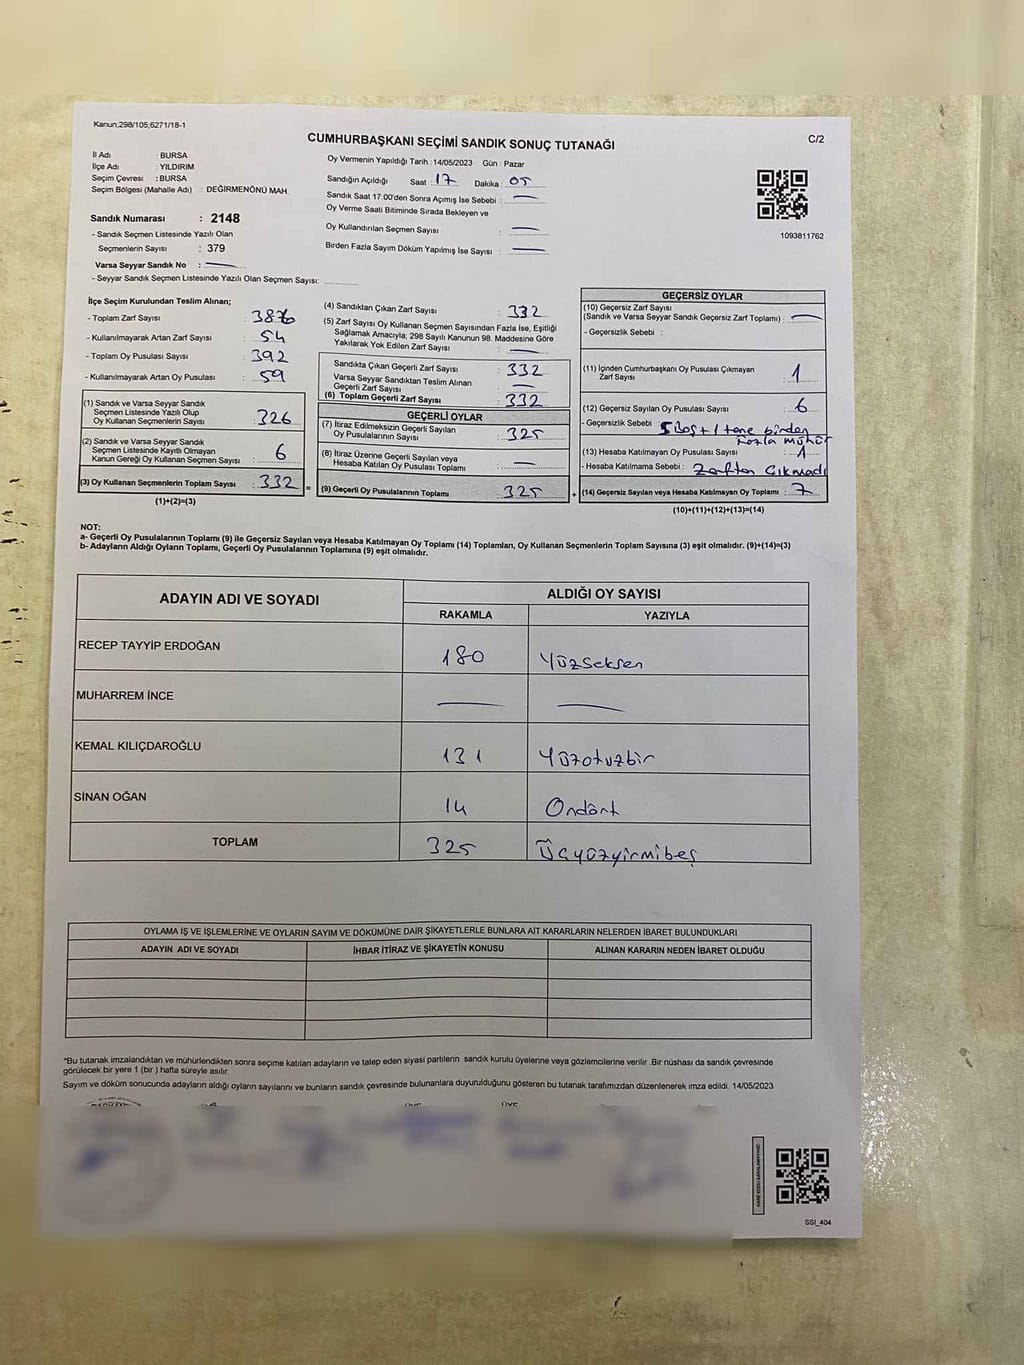 Kanun,298/105,6271/18-1
CUMHURBAŞKANI SEÇİMİ SANDIK SONUÇ TUTANAĞI
C/2
İl Adı : BURSA
İlçe Adı : YILDIRIM
Seçim Çevresi : BURSA
Seçim Bölgesi (Mahalle Adı) : DEĞİRMENÖNÜ MAH.
Sandık Numarası : 2148
- Sandık Seçmen Listesinde Yazılı Olan
Seçmenlerin Sayısı : 379
Varsa Seyyar Sandık No :
- Seyyar Sandık Seçmen Listesinde Yazılı Olan Seçmen Sayısı:
Oy Vermenin Yapıldığı Tarih : 14/05/2023 Gün : Pazar
Sandığın Açıldığı Saat : 17 Dakika : 05
Sandık Saat 17:00'den Sonra Açımış İse Sebebi :
Oy Verme Saati Bitiminde Sırada Bekleyen ve
Oy Kullandırılan Seçmen Sayısı :
Birden Fazla Sayım Döküm Yapılmış İse Sayısı :
1093811762
İlçe Seçim Kurulundan Teslim Alınan;
- Toplam Zarf Sayısı : 386
- Kullanılmayarak Artan Zarf Sayısı : 54
- Toplam Oy Pusulası Sayısı : 392
- Kullanılmayarak Artan Oy Pusulası : 59
(1) Sandık ve Varsa Seyyar Sandık
Seçmen Listesinde Yazılı Olup
Oy Kullanan Seçmenlerin Sayısı : 326
(2) Sandık ve Varsa Seyyar Sandık
Seçmen Listesinde Kayıtlı Olmayan
Kanun Gereği Oy Kullanan Seçmen Sayısı : 6
(3) Oy Kullanan Seçmenlerin Toplam Sayısı : 332 =
(1)+(2)=(3)
(4) Sandıktan Çıkan Zarf Sayısı : 332
(5) Zarf Sayısı Oy Kullanan Seçmen Sayısından Fazla İse, Eşitliği
Sağlamak Amacıyla; 298 Sayılı Kanunun 98. Maddesine Göre
Yakılarak Yok Edilen Zarf Sayısı :
Sandıkta Çıkan Geçerli Zarf Sayısı : 332
Varsa Seyyar Sandıktan Teslim Alınan
Geçerli Zarf Sayısı :
(6) Toplam Geçerli Zarf Sayısı : 332
GEÇERLİ OYLAR
(7) İtiraz Edilmeksizin Geçerli Sayılan
Oy Pusulalarının Sayısı : 325
(8) İtiraz Üzerine Geçerli Sayılan veya
Hesaba Katılan Oy Pusulası Toplamı :
(9) Geçerli Oy Pusulalarının Toplamı : 325 +
GEÇERSİZ OYLAR
(10) Geçersiz Zarf Sayısı
(Sandık ve Varsa Seyyar Sandık Geçersiz Zarf Toplamı) :
- Geçersizlik Sebebi :
(11) İçinden Cumhurbaşkanı Oy Pusulası Çıkmayan
Zarf Sayısı : 1
(12) Geçersiz Sayılan Oy Pusulası Sayısı : 6
- Geçersizlik Sebebi : 5 boş + 1 tane birden
fazla mühür
(13) Hesaba Katılmayan Oy Pusulası Sayısı : 1
- Hesaba Katılmama Sebebi : Zaftan Çıkmadı
(14) Geçersiz Sayılan veya Hesaba Katılmayan Oy Toplamı : 7
(10)+(11)+(12)+(13)=(14)
NOT:
a- Geçerli Oy Pusulalarının Toplamı (9) ile Geçersiz Sayılan veya Hesaba Katılmayan Oy Toplamı (14) Toplamları, Oy Kullanan Seçmenlerin Toplam Sayısına (3) eşit olmalıdır. (9)+(14)=(3)
b- Adayların Aldığı Oyların Toplamı, Geçerli Oy Pusulalarının Toplamına (9) eşit olmalıdır.
ADAYIN ADI VE SOYADI
ALDIĞI OY SAYISI
RAKAMLA YAZIYLA
RECEP TAYYİP ERDOĞAN 180 Yüzseksen
MUHARREM İNCE
KEMAL KILIÇDAROĞLU 131 Yüzotuzbir
SİNAN OĞAN 14 Ondört
TOPLAM 325 Üçyüzyirmibeş
OYLAMA İŞ VE İŞLEMLERİNE VE OYLARIN SAYIM VE DÖKÜMÜNE DAİR ŞİKAYETLERLE BUNLARA AİT KARARLARIN NELERDEN İBARET BULUNDUKLARI
ADAYIN ADI VE SOYADI İHBAR İTİRAZ VE ŞİKAYETİN KONUSU ALINAN KARARIN NEDEN İBARET OLDUĞU
*Bu tutanak imzalandıktan ve mühürlendikten sonra seçime katılan adayların ve talep eden siyasi partilerin sandık kurulu üyelerine veya gözlemcilerine verilir .Bir nüshası da sandık çevresinde
görülecek bir yere 1 (bir ) hafta süreyle asılır.
Sayım ve döküm sonucunda adayların aldığı oyların sayılarını ve bunların sandık çevresinde bulunanlara duyurulduğunu gösteren bu tutanak tarafımızdan düzenlenerek imza edildi. 14/05/2023
SSI_404